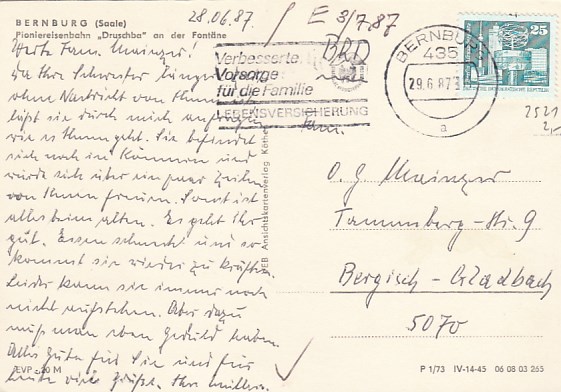 BERNBURG (Saale)
Pioniereisenbahn „Druschba" an der Fontäne
28.06.87.
E 3/7.87
BRD
Werte Fam. Mainzer!
Da Ihre Schwester längere Zeit
ohne Nachricht von Ihnen ist
läßt sie durch mich anfragen
wie es Ihnen geht. Sie befindet
sich noch in
würde sich über ein paar Zeilen
von Ihnen freuen. Sonst ist
alles beim alten. Es geht ihr
gut. Essen schmeckt und so
kommt sie wieder zu Kräften.
Leider kann sie immer noch
nicht aufstehen. Aber dazu
muß man eben Geduld haben.
Alles Gute für Sie und für
heute viele Grüße. Ihr
EVP -,20 M
VEB Ansichtskartenverlag Köthen
Verbesserte
Vorsorge
für die Familie
LEBENSVERSICHERUNG
BERNBURG
435
29.6.87
a
25
2521
Fam.
O. G. Mainzer
Tannenberg-Str. 9
Bergisch-Gladbach
5070
P 1/73 IV-14-45 06 08 03 255